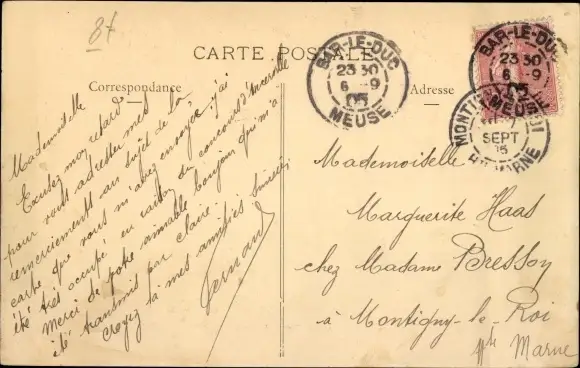 8f
CARTE POSTALE
Correspondance
Adresse
BAR-LE-DUC
23 30
6 - 9
05
MEUSE
BAR-LE-DUC
23 30
6 - 9
05
MEUSE
MONTIGNY
ROI
7
SEPT
05
Hte MARNE
Mademoiselle
Excusez mon retard
pour vous adresser mes
remerciements au sujet de la
carte que vous m'avez envoyée, j'ai
été très occupé en raison du concours d'Ancerville
Merci de votre aimable bonjour qui m'a
été transmis par Claire.
Croyez à mes amitiés sincères
Fernand
Mademoiselle
Marguerite Haas
chez Madame Bresson
à Montigny-le-Roi
Hte Marne